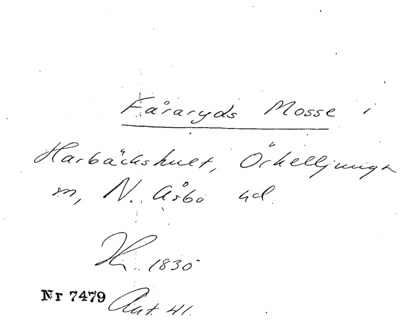 Fåraryds Mosse i
Harbäckshult, Örkelljunga
m, N. Åsbo hd.
H. 1835
Nr 7479 Ant. 41.